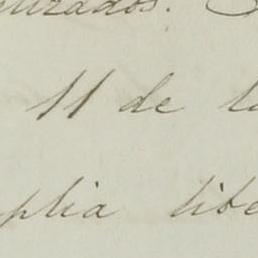 lizados.
11 de l
plia libe